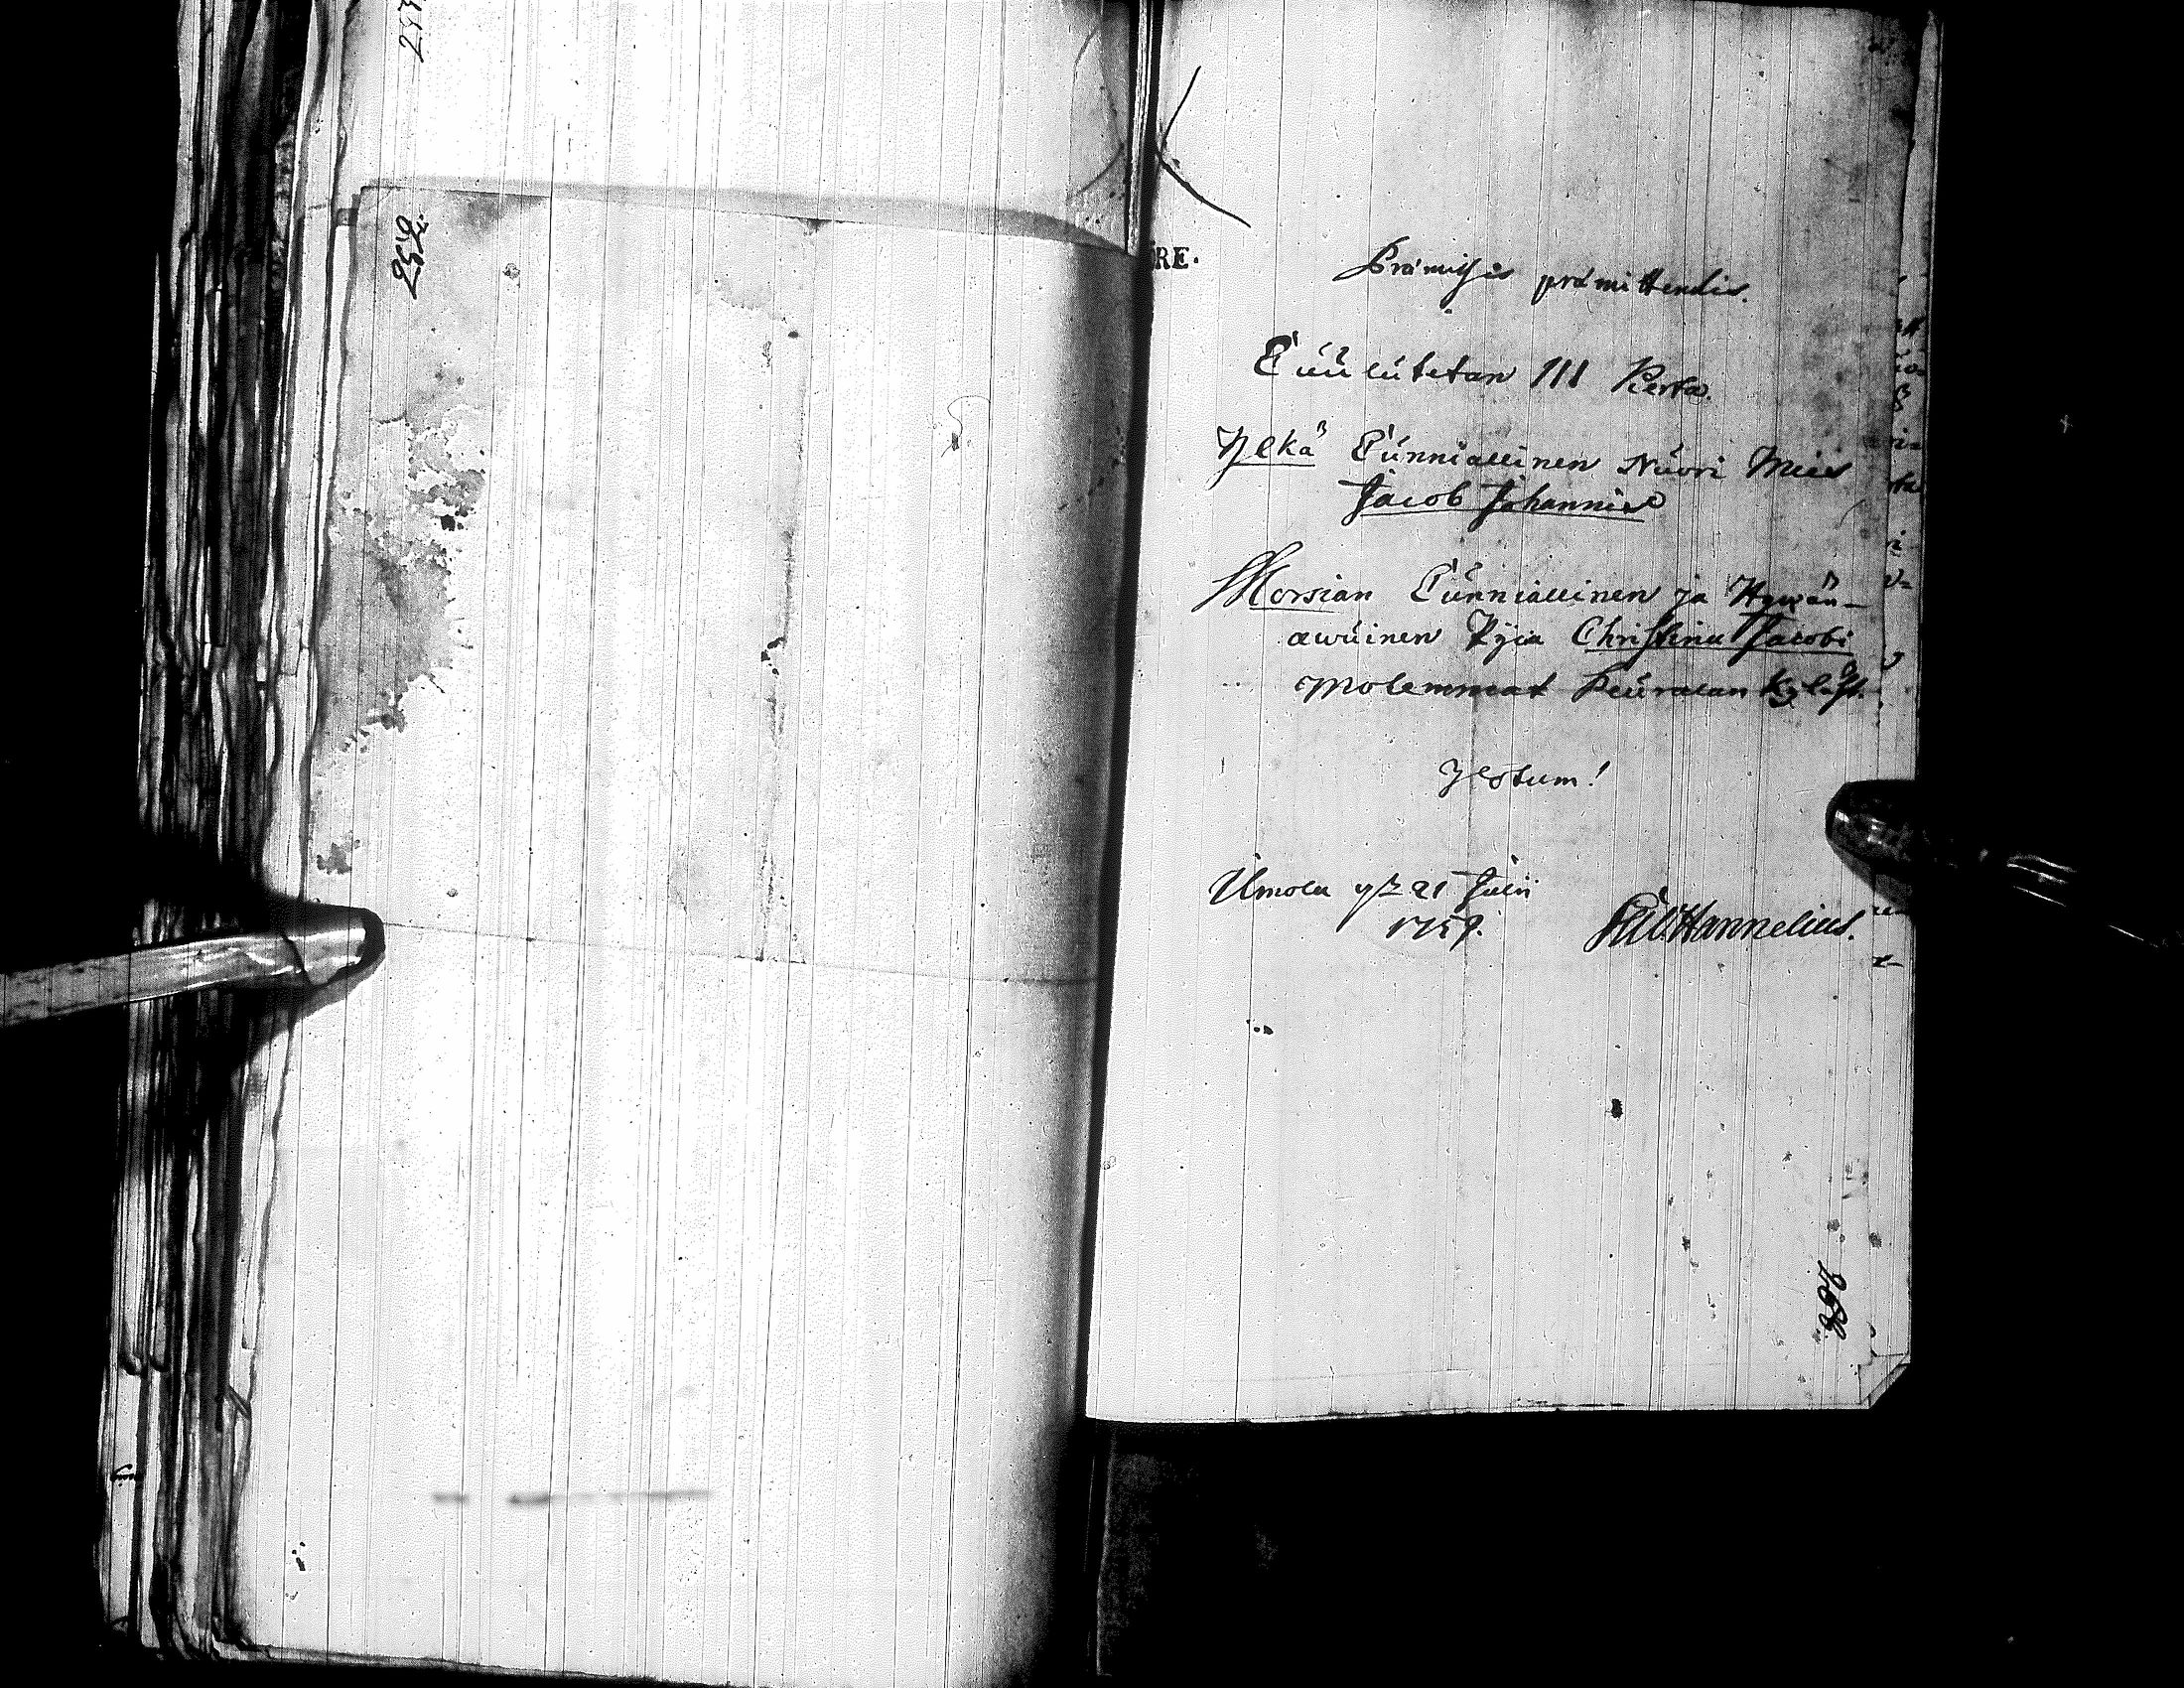 Præmissis præmittendis.
Cuulutetan III Kerta.
Ylkä Cunniallinen Nuori Mies
Jacob Johannis
Morsian Cunniallinen ja Hywän-
awuinen Pijca Christina Jacobi
molemmat Peuralan Kyläst.
Ylostum!
Umola 21 Julii
1759.
Hannelius.
268.
RE.